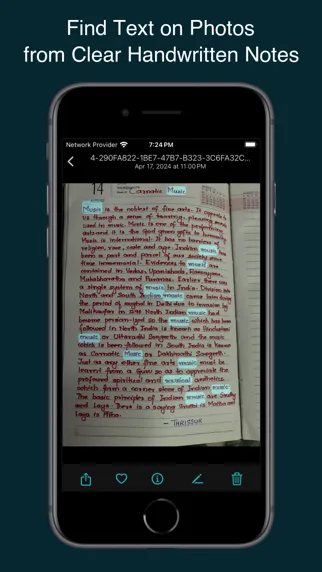 Find Text on Photos
from Clear Handwritten Notes
Network Provider 7:24 PM
4-290FA822-1BE7-47B7-B323-3C6FA32C...
Apr 17, 2024 at 11:00 PM
14 Carnatic Music
Music is the noblest of fine arts. It appeals to
us through a sense of hearing, pleasing
used in music. Music is one of the performing
arts and it is the God given gifts to humanity.
Music is International. It has no barriers of
religion, race, caste and age. Indian music has
been a part and parcel of our society since
time immemorial. Evidences to music are
contained in Vedas, Upanishads, Ramayana,
Mahabharatha and Puranas. Earlier there was
a single system of music in India. Division as
North and South Indian music came into being
the period of
in the 13th. North Indian music had
become persian-ized so the music which has been
followed in North India is known as Hindustani
music or Uttaradhi Sangeeth and the music
which is been followed in South India is known
as Carnatic Music or Dakhinadhi Sangeeth.
Just as any other fine arts music must be
learned from a Guru so as to appreciate the
profound spiritual and musical aesthetics
which form a corner stone of Indian music.
The basic principles of Indian music are Sruthy
and Laya. There is a saying Sruthi is Matha and
Laya is Pitha.
- THRISSUR